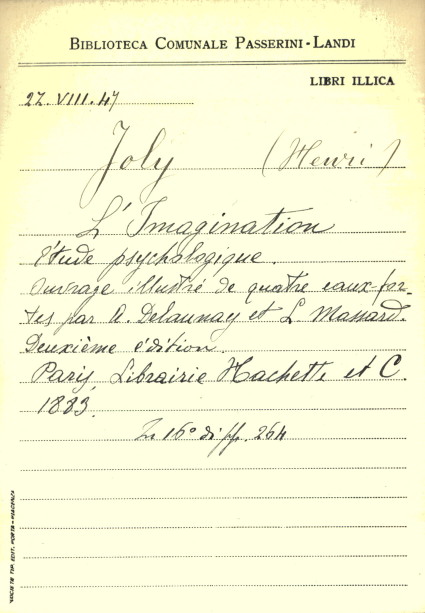 BIBLIOTECA COMUNALE PASSERINI-LANDI
LIBRI ILLICA
27.VIII.47
Joly (Henri)
L'Imagination
étude psychologique.
Ouvrage illustré de quatre eaux-for-
tes par A. Delaunay et L. Massard.
Deuxième édition.
Paris, Librairie Hachette et C.
1883.
In 16° di pp. 264